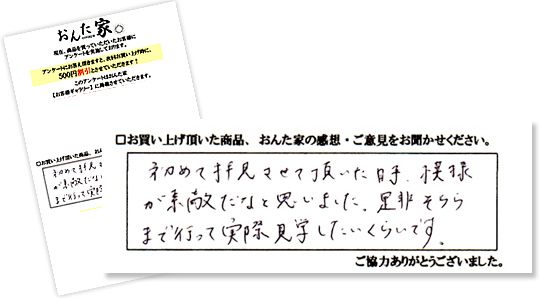 おんた家
現在、商品を買っていただいたお客様に
アンケートを実施しております。
アンケートにお答え頂きますと、次回お買い上げ時に、
500円割引とさせていただきます!
このアンケートはおんた家
【お客様ギャラリー】に掲載させていただきます。
□お買い上げ頂いた商品、おん
初めて拝見さ
が素敵だな
まで行って実際
□お買い上げ頂いた商品、おんた家の感想・ご意見をお聞かせください。
初めて拝見させて頂いた時、模様
が素敵だなと思いました。是非そちら
まで行って実際見学したいくらいです。
ご協力ありがとうございました。